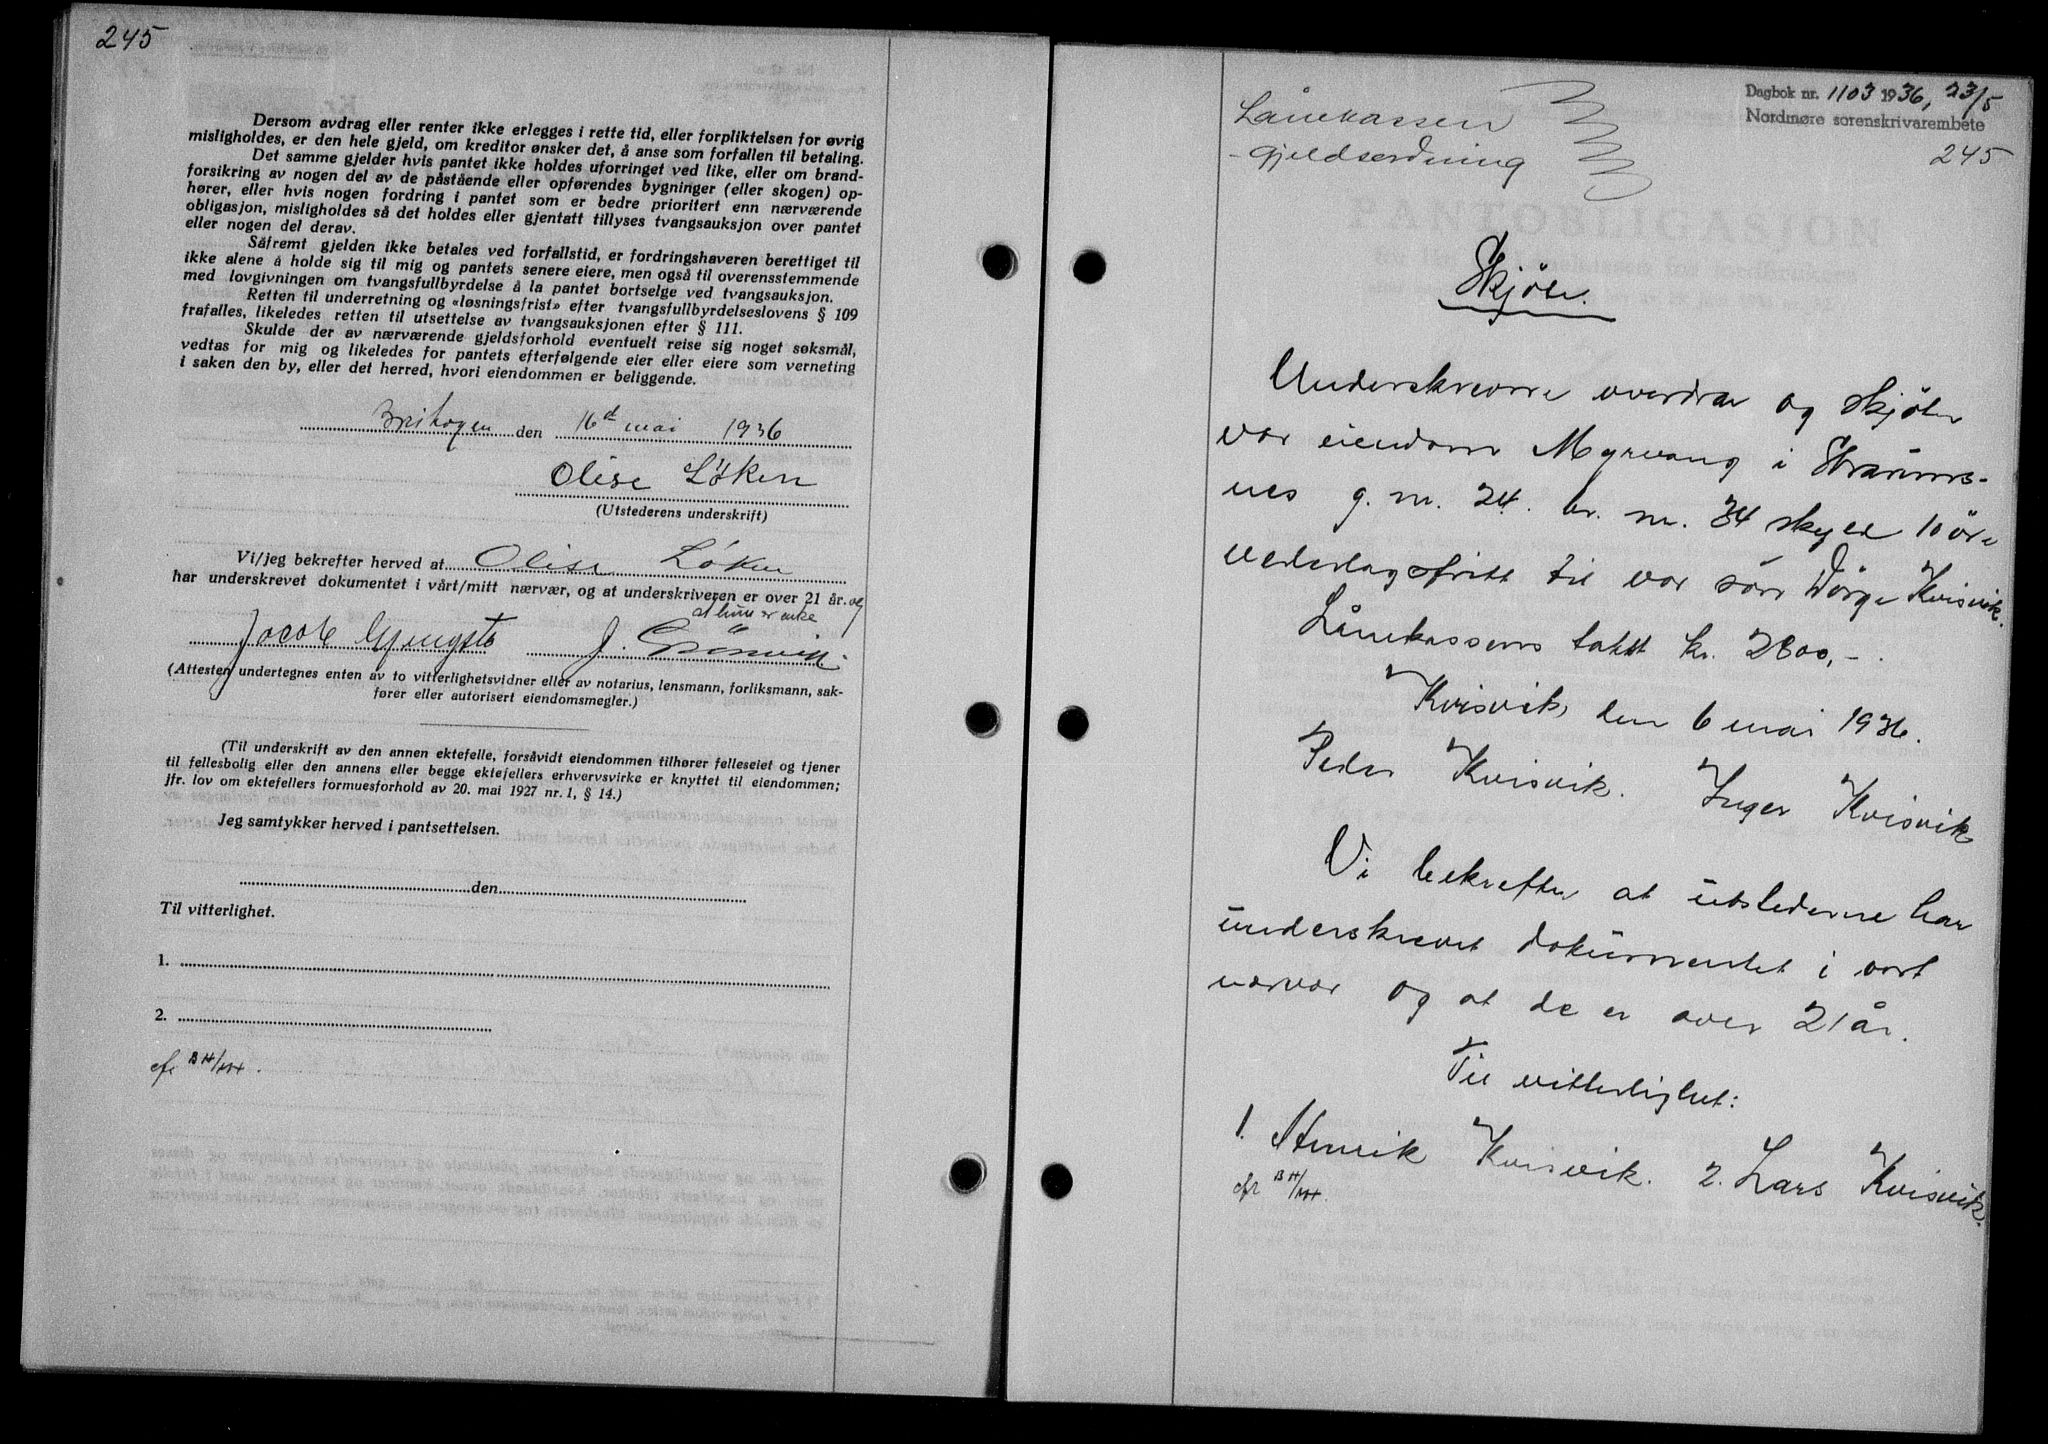 245
Dersom avdrag eller renter ikke erlegges i rette tid, eller forpliktelsen for øvrig
misligholdes, er den hele gjeld, om kreditor ønsker det, å anse som forfallen til betaling.
Det samme gjelder hvis pantet ikke holdes uforringet ved like, eller om brand-
forsikring av nogen del av de påstående eller opførendes bygninger (eller skogen) op-
hører, eller hvis nogen fordring i pantet som er bedre prioritert enn nærværende
obligasjon, misligholdes så det holdes eller gjentatt tillyses tvangsauksjon over pantet
eller nogen del derav.
Såfremt gjelden ikke betales ved forfallstid, er fordringshaveren berettiget til
ikke alene å holde sig til mig og pantets senere eiere, men også til overensstemmende
med lovgivningen om tvangsfullbyrdelse å la pantet bortselge ved tvangsauksjon.
Retten til underretning og «løsningsfrist» efter tvangsfullbyrdelseslovens § 109
frafalles, likeledes retten til utsettelse av tvangsauksjonen efter § 111.
Skulde der av nærværende gjeldsforhold eventuelt reise sig noget søksmål,
vedtas for mig og likeledes for pantets efterfølgende eier eller eiere som verneting
i saken den by, eller det herred, hvori eiendommen er beliggende.
den 16d mai 1936
Olise Löken
(Utstederens underskrift)
Vi/jeg bekrefter herved at Olise Löken
har underskrevet dokumentet i vårt/mitt nærvær, og at underskriveren er over 21 år. og
at hun er enke
Jacob J.
(Attesten undertegnes enten av to vitterlighetsvidner eller av notarius, lensmann, forliksmann, sak-
fører eller autorisert eiendomsmegler.)
(Til underskrift av den annen ektefelle, forsåvidt eiendommen tilhører felleseiet og tjener
til fellesbolig eller den annens eller begge ektefellers erhvervsvirke er knyttet til eiendommen;
jfr. lov om ektefellers formuesforhold av 20. mai 1927 nr. 1, § 14.)
Jeg samtykker herved i pantsettelsen.
den
Til vitterlighet.
1.
2.
Dagbok nr. 1103 1936, 23/5
Nordmøre sorenskrivarembete
245
Lånekassen
- gjeldsordning
Skjöte.
Underskrevne overdrar og skjöter
vor eiendom Myrvang i Straums-
nes g. nr. 24. br. nr. 34 skyld 10 öre
vederlagsfritt til vor sön Dörge Kvisvik.
Lånekassens takst kr. 2800,-.
Kvisvik, den 6 mai 1936.
Peder Kvisvik. Inger Kvisvik
Vi bekrefter at utstederne har
underskrevet dokumentet i vort
nærvær og at de er over 21 år.
Til vitterlighet:
1. Henrik Kvisvik. 2. Lars Kvisvik.